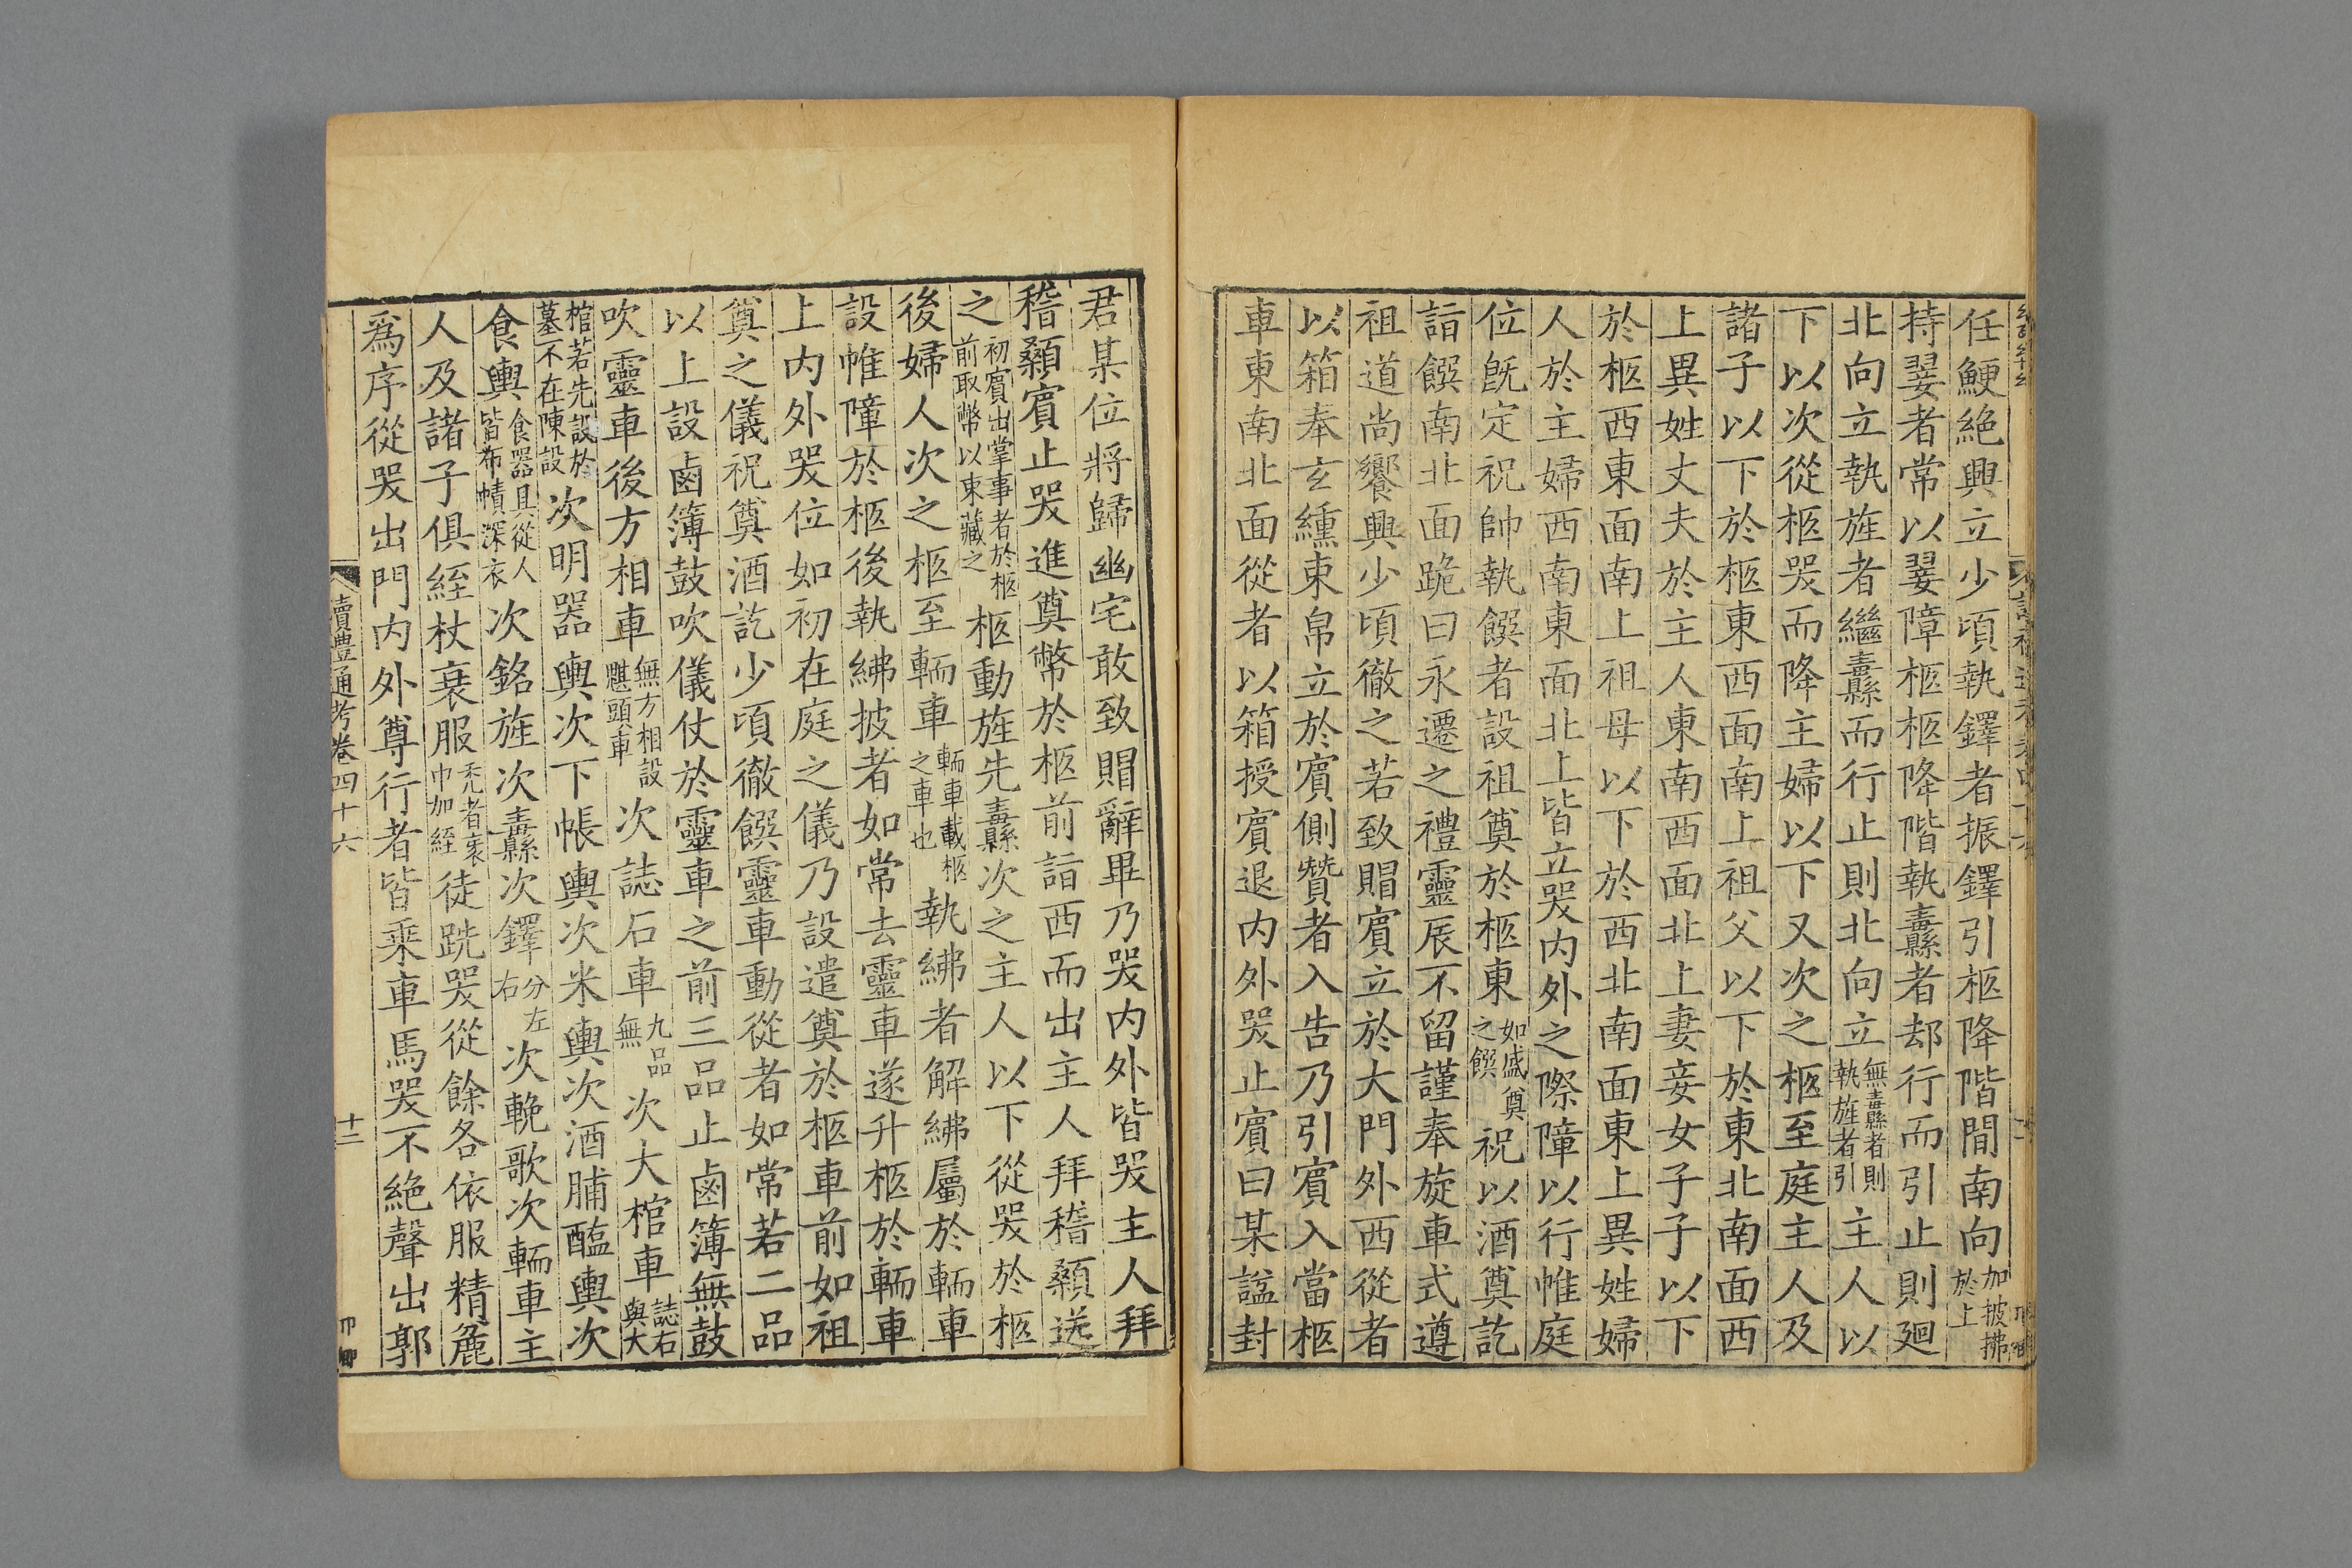 任鯁絶興立少頃執鐸者振鐸引柩降階間南向加披拂於上
持翣者常以翣障柩柩降階執纛者却行而引止則廻
北向立執旌者繼纛而行止則北向立無纛者則執旌者引主人以
下以次從柩哭而降主婦以下又次之柩至庭主人及
諸子以下於柩東西面南上祖父以下於東北南面西
上異姓丈夫於主人東南西面北上妻妾女子子以下
於柩西東面南上祖母以下於西北南面東上異姓婦
人於主婦西南東面北上皆立哭内外之際障以行帷庭
位旣定祝帥執饌者設祖奠於柩東如盛奠之饌祝以酒奠訖
詣饌南北面跪曰永遷之禮靈辰不留謹奉旋車式遵
祖道尚饗興少頃徹之若致賵賓立於大門外西從者
以箱奉玄纁束帛立於賓側贊者入告乃引賓入當柩
車東南北面從者以箱授賓退内外哭止賓曰某諡封
君某位將歸幽宅敢致賵辭畢乃哭内外皆哭主人拜
稽顙賓止哭進奠幣於柩前詣西而出主人拜稽顙送
之初賓出掌事者於柩前取幣以東藏之柩動旌先纛次之主人以下從哭於柩
後婦人次之柩至輀車輀車載柩之車也執紼者解紼屬於輀車
設帷障於柩後執紼披者如常去靈車遂升柩於輀車
上内外哭位如初在庭之儀乃設遣奠於柩車前如祖
奠之儀祝奠酒訖少頃徹饌靈車動從者如常若二品
以上設鹵簿鼓吹儀仗於靈車之前三品止鹵簿無鼓
吹靈車後方相車無方相設魌頭車次誌石車九品無次大棺車誌石與大
棺若先設於墓不在陳設次明器輿次下帳輿次米輿次酒脯醢輿次
食輿食器具從人皆布幘深衣次銘旌次纛次鐸分左右次輓歌次輀車主
人及諸子俱絰杖衰服禿者裹巾加絰徒跣哭從餘各依服精麄
爲序從哭出門内外尊行者皆乘車馬哭不絶聲出郭
讀豊通考卷四十六
十二